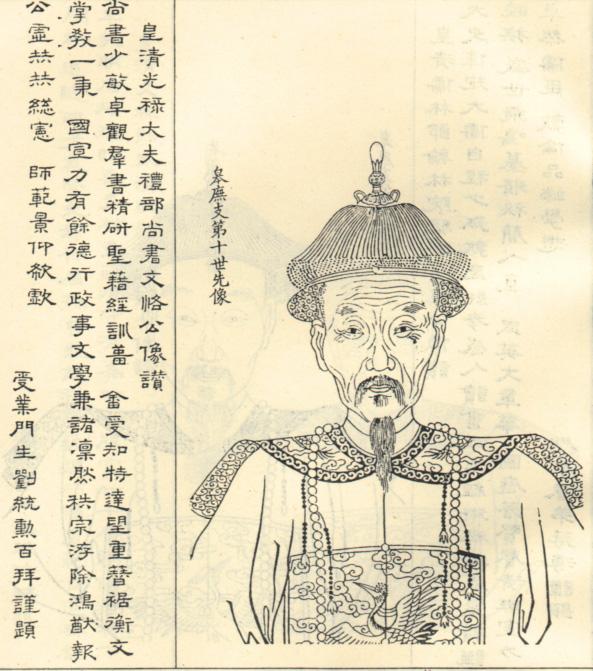 皋廡支第十世先像
皇清光祿大夫禮部尚書文恪公像讃
尚書少敏卓觀羣書精研聖藉經訓菑 畬受知特達望重簪裾衡文
掌教一秉 國宣力有餘德行政事文學兼諸凜肰秩宗洊除鴻猷報
公虛共共緫憲 師範景仰欷歔
受業門生劉統勳百拜謹題